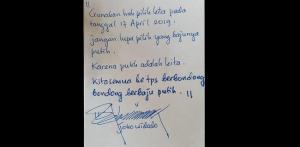 "
Gunakan hak pilih kita pada
tanggal 17 April 2019.
jangan lupa pilih yang bajunya
putih.
Karena putih adalah kita.
kita semua ke tps berbondong
bondong berbaju putih. "
joko widodo